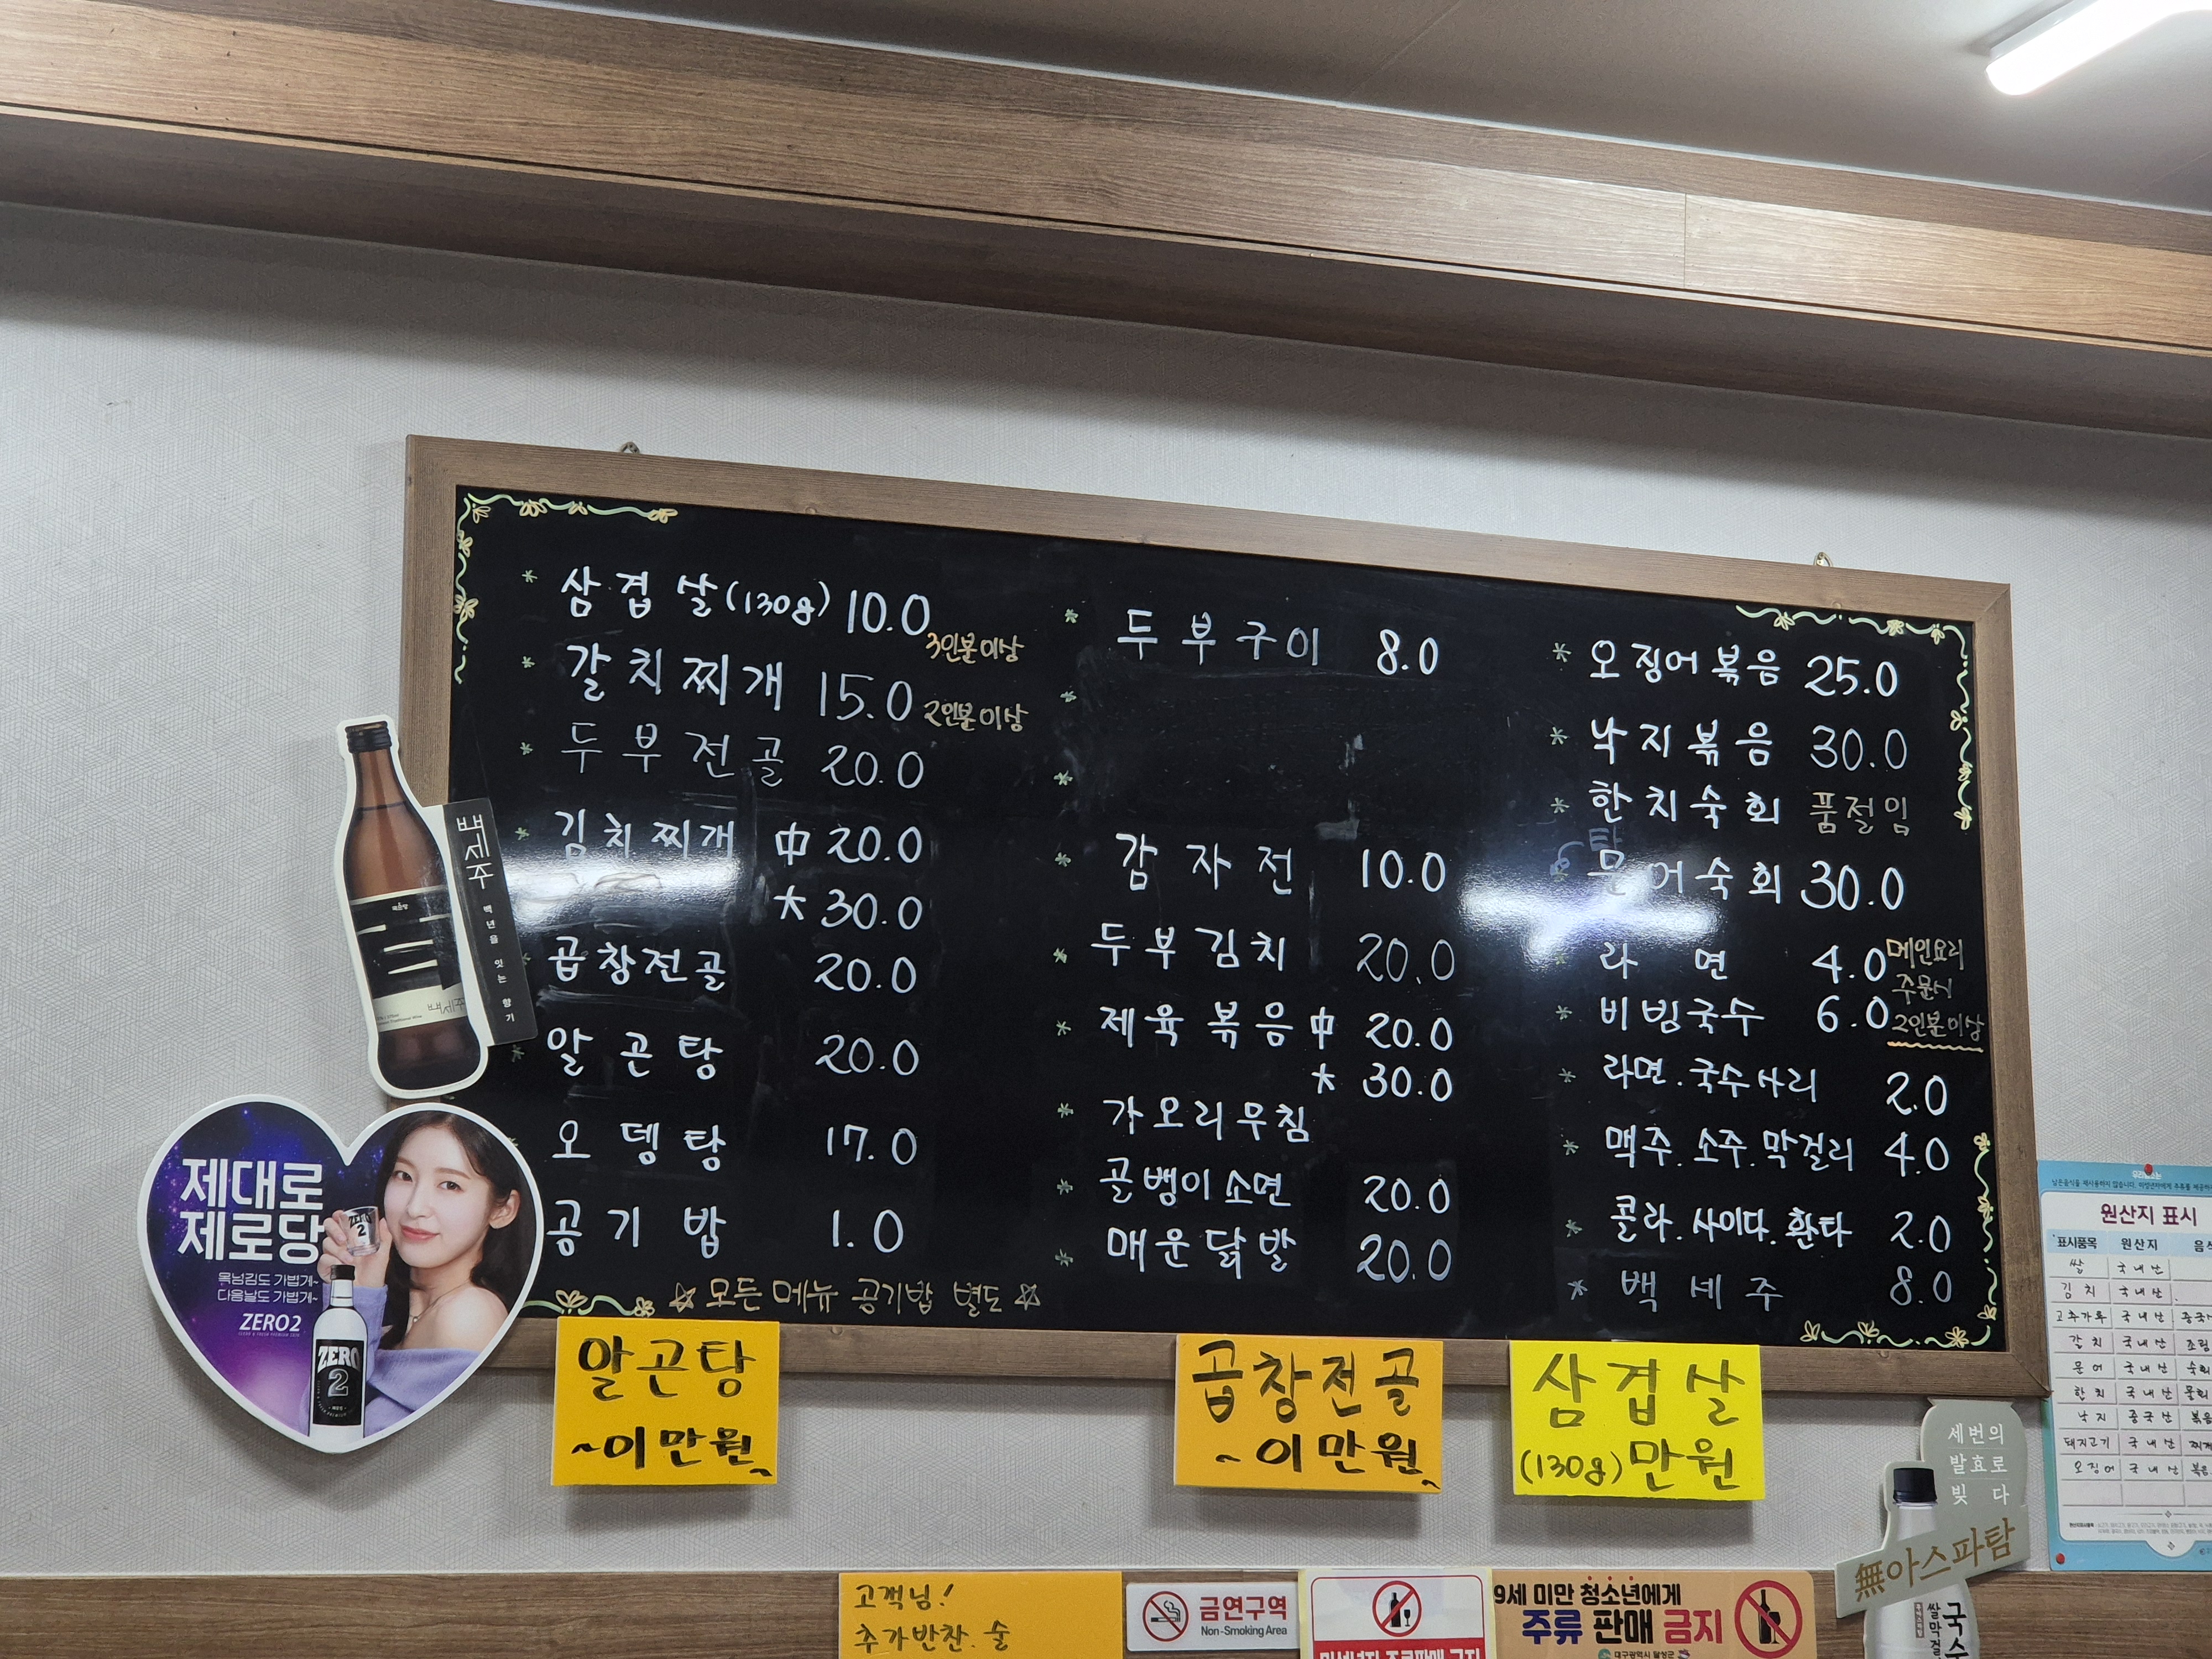 * 삼겹살(130g) 10.0 3인분이상
* 갈치찌개 15.0 2인분이상
* 두부전골 20.0
* 김치찌개 中 20.0
大 30.0
곱창전골 20.0
알곤탕 20.0
오뎅탕 17.0
공기밥 1.0
☆ 모든메뉴 공기밥 별도 ☆
* 두부구이 8.0
*
*
* 감자전 10.0
* 두부김치 20.0
* 제육볶음 中 20.0
大 30.0
* 가오리무침
* 골뱅이소면 20.0
* 매운닭발 20.0
* 오징어볶음 25.0
* 낙지볶음 30.0
* 한치숙회 품절임
탕
문어숙회 30.0
라면 4.0 메인요리
주문시
* 비빔국수 6.0 2인분이상
* 라면.국수사리 2.0
* 맥주.소주.막걸리 4.0
* 콜라.사이다.환타 2.0
* 백세주 8.0
백세주 백년을 잇는 향기
백세주
제대로
제로당
목넘김도 가볍게~
다음날도 가볍게~
ZERO2
ZERO
2
알곤탕
~이만원~
곱창전골
~이만원~
삼겹살
(130g)만원
원산지 표시
표시품목 원산지
쌀 국내산
김치 국내산
고춧가루 국내산
갈치 국내산
문어 국내산
한치 국내산
낙지 중국산 볶음
돼지고기 국내산
오징어 국내산 볶음
세번의
발효로
빚다
無아스파탐
고객님!
추가반찬.술
금연구역
Non-Smoking Area
9세 미만 청소년에게
주류 판매 금지
대구광역시 달성군